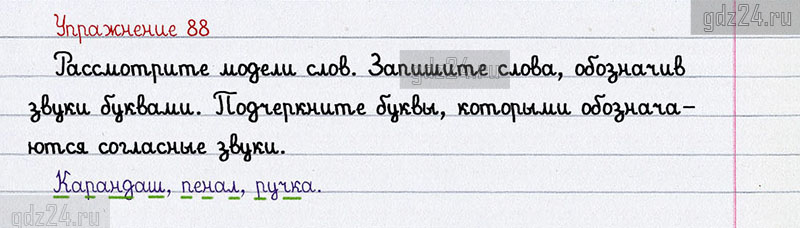 gdz24.ru
Упражнение 88
Рассмотрите модели слов. Запишите слова, обозначив
звуки буквами. Подчеркните буквы, которыми обознача-
ются согласные звуки.
Карандаш, пенал, ручка.
gdz24.ru